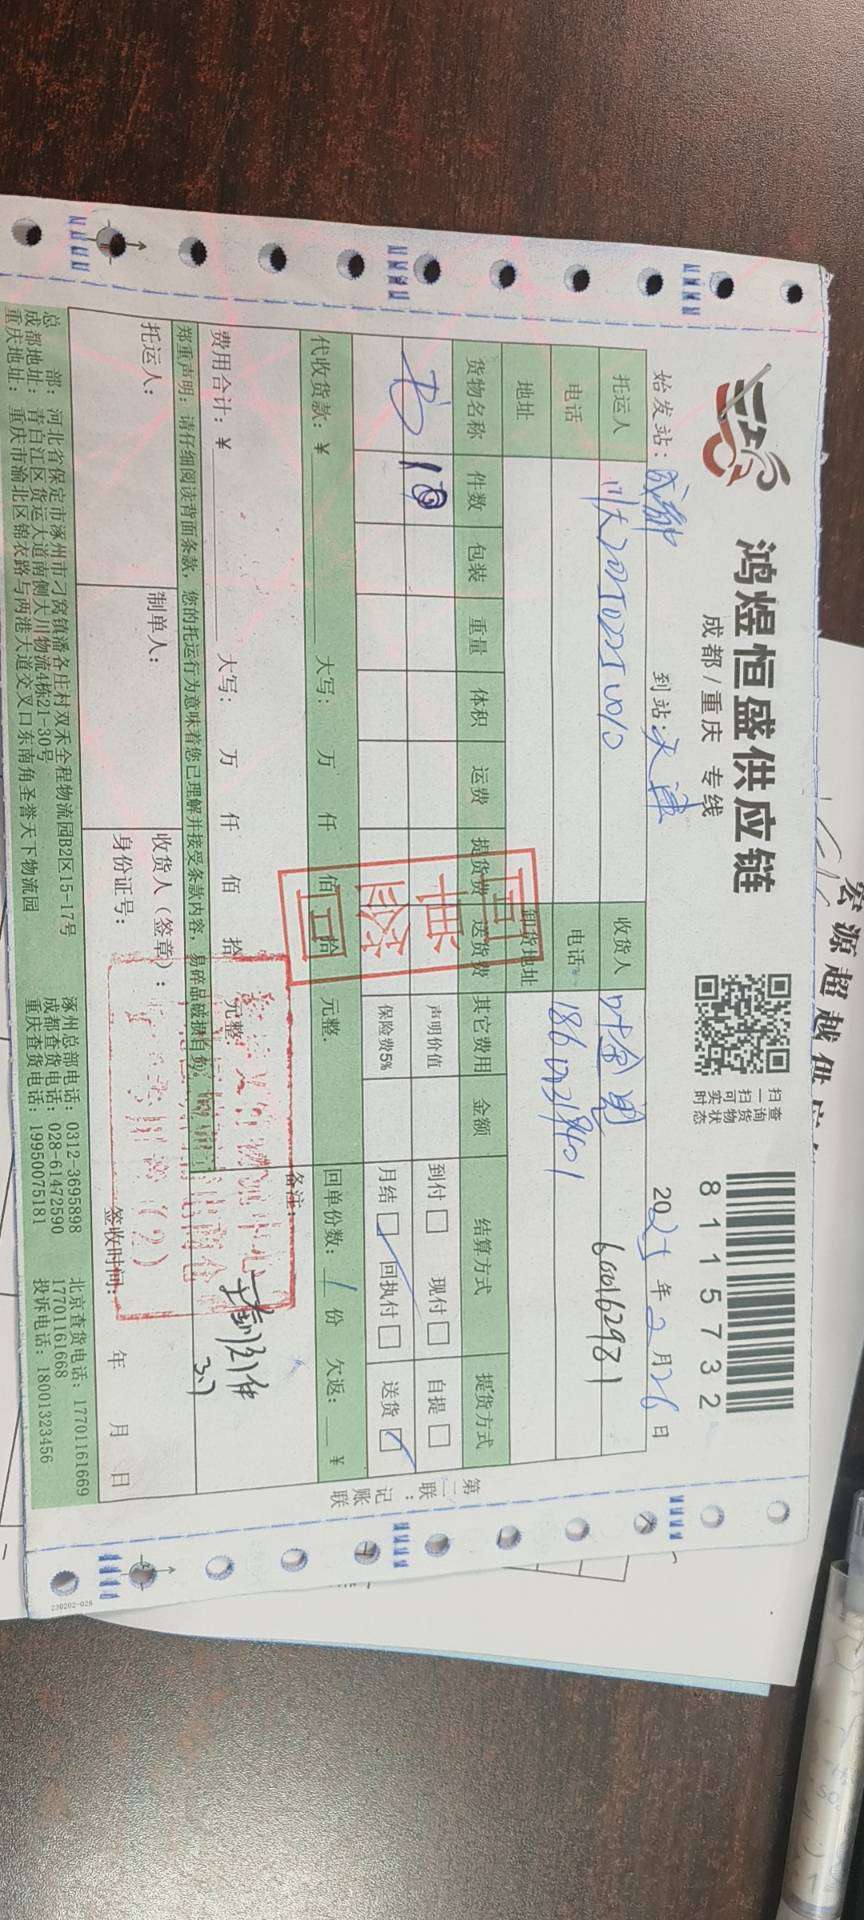 宏源超越供应链
鸿煜恒盛供应链
成都/重庆 专线
扫一扫可实时
查询货物状态
8115732
始发站：成都 到站：天津 2025年2月26日
托运人 川大20250225W010 收货人 叶金
6001629231
电话 电话
地址 卸货地址
货物名称 件数 包装 重量 体积 运费 提货费 送货费 其它费用 金额 结算方式 提货方式
书 1 声明价值 到付 现付 自提
保险费5% 月结 回执付 送货
代收货款：￥ 大写： 万 仟 佰 拾 元整 回单份数：1份 欠返：￥
费用合计：￥ 大写： 万 仟 佰 拾 元整 备注：
签回单
3.7
郑重声明：请仔细阅读背面条款，您的托运行为意味着您已理解并接受条款内容，易碎品破损自负。
托运人： 制单人： 收货人（签章）：
身份证号： 签收时间： 年 月 日
(2)
总部：河北省保定市涿州市刁窝镇潘各庄村双禾全程物流园B2区15-17号 涿州总部电话：0312-3695898 北京查货电话：17701161669
成都地址：青白江区货运大道南侧大川物流4栋21-30号 成都查货电话：028-61472590 17701161668
重庆地址：重庆市渝北区锦衣路与两港大道交叉口东南角圣誉天下物流园 重庆查货电话：19950075181 投诉电话：18001323456
第二联：记账联
230202-028